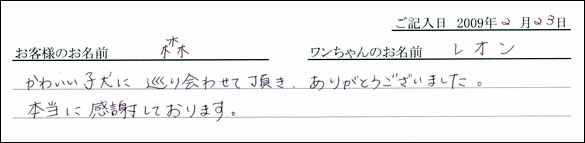 ご記入日 2009年2月23日
お客様のお名前 森 ワンちゃんのお名前 レオン
かわいい子犬に 巡り会わせて頂き、ありがとうございました。
本当に感謝しております。